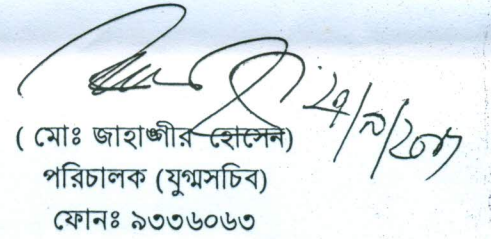 ( মোঃ জাহাঙ্গীর হোসেন)
পরিচালক (যুগ্মসচিব)
ফোনঃ ৯৩৩৬০৬৩